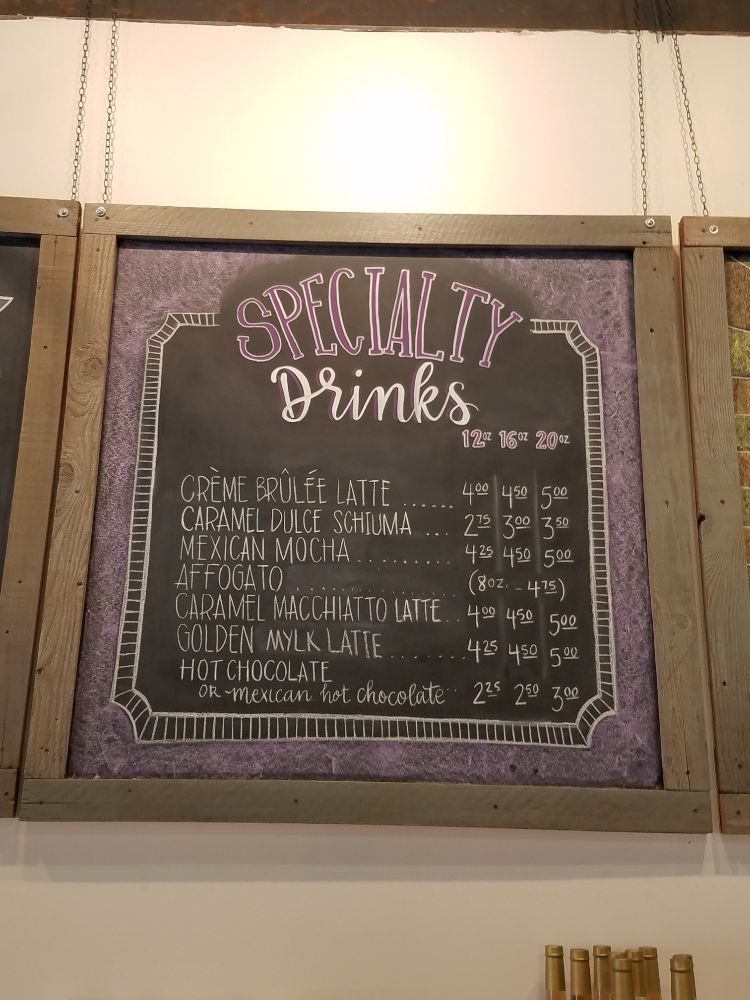 SPECIALTY
Drinks
12oz 16oz 20oz
CRÈME BRÛLÉE LATTE ...... 4.00 4.50 5.00
CARAMEL DULCE SCHIUMA ... 2.75 3.00 3.50
MEXICAN MOCHA .......... 4.25 4.50 5.00
AFFOGATO ................ (8oz. - 4.75)
CARAMEL MACCHIATTO LATTE.. 4.00 4.50 5.00
GOLDEN MYLK LATTE ........ 4.25 4.50 5.00
HOT CHOCOLATE
OR ~mexican hot chocolate.. 2.25 2.50 3.00